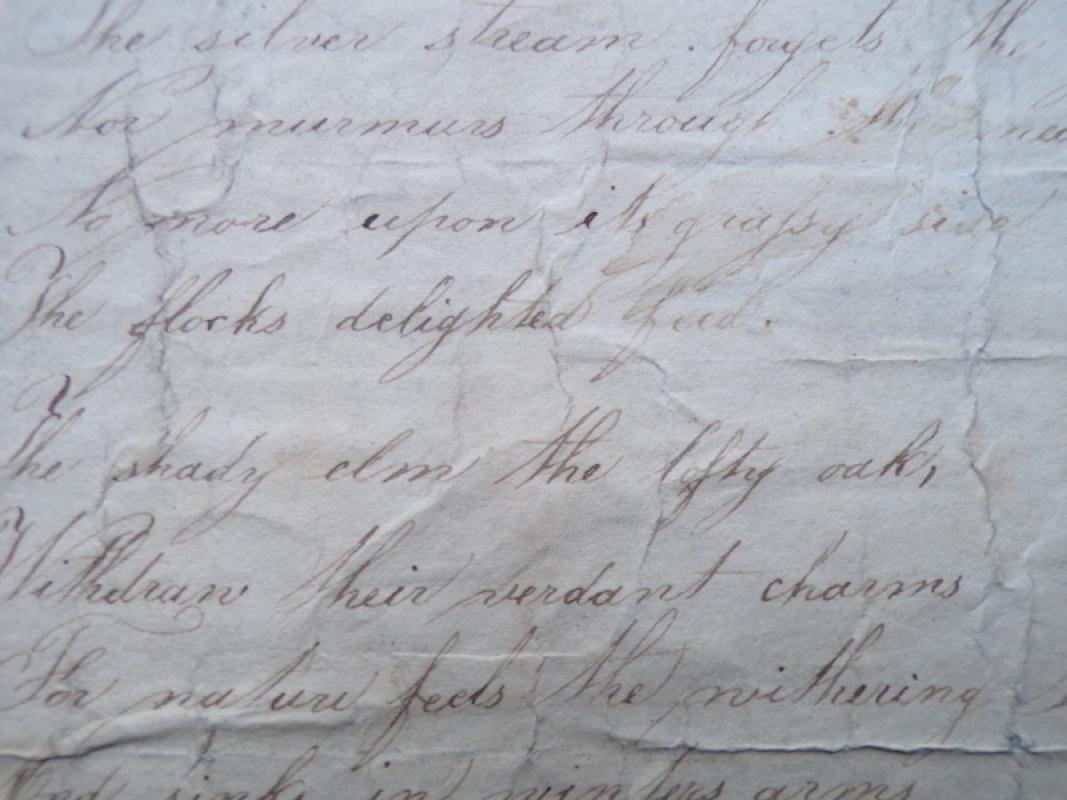 The silver stream forgets the
Nor murmurs through the mea
No more upon its grassy side
The flocks delighted feed.
The shady elm the lofty oak,
Withdraw their verdant charms
For nature feels the withering
And sinks in winters arms